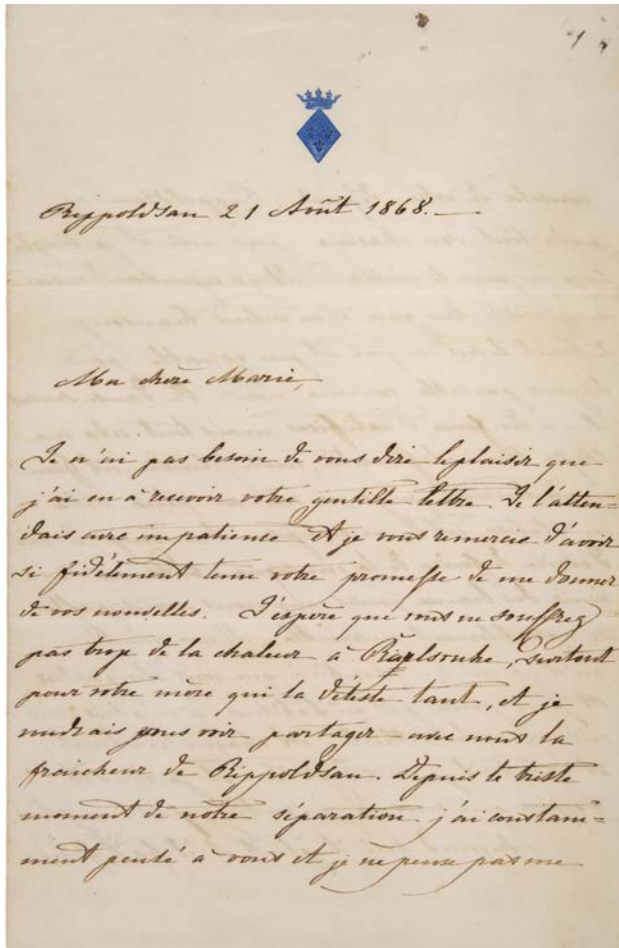 1
Rippoldsau 21 Août 1868. —
Ma chère Marie,
Je n'ai pas besoin de vous dire le plaisir que
j'ai eu à recevoir votre gentille lettre. Je l'atten=
dais avec impatience et je vous remercie d'avoir
si fidèlement tenu votre promesse de me donner
de vos nouvelles. J'espère que vous ne souffrez
pas trop de la chaleur à Karlsruhe, surtout
pour votre mère qui la déteste tant, et je
voudrais pouvoir partager avec vous la
fraicheur de Rippoldsau. Depuis le triste
moment de nôtre séparation j'ai constam=
ment pensé à vous et je ne peux pas me